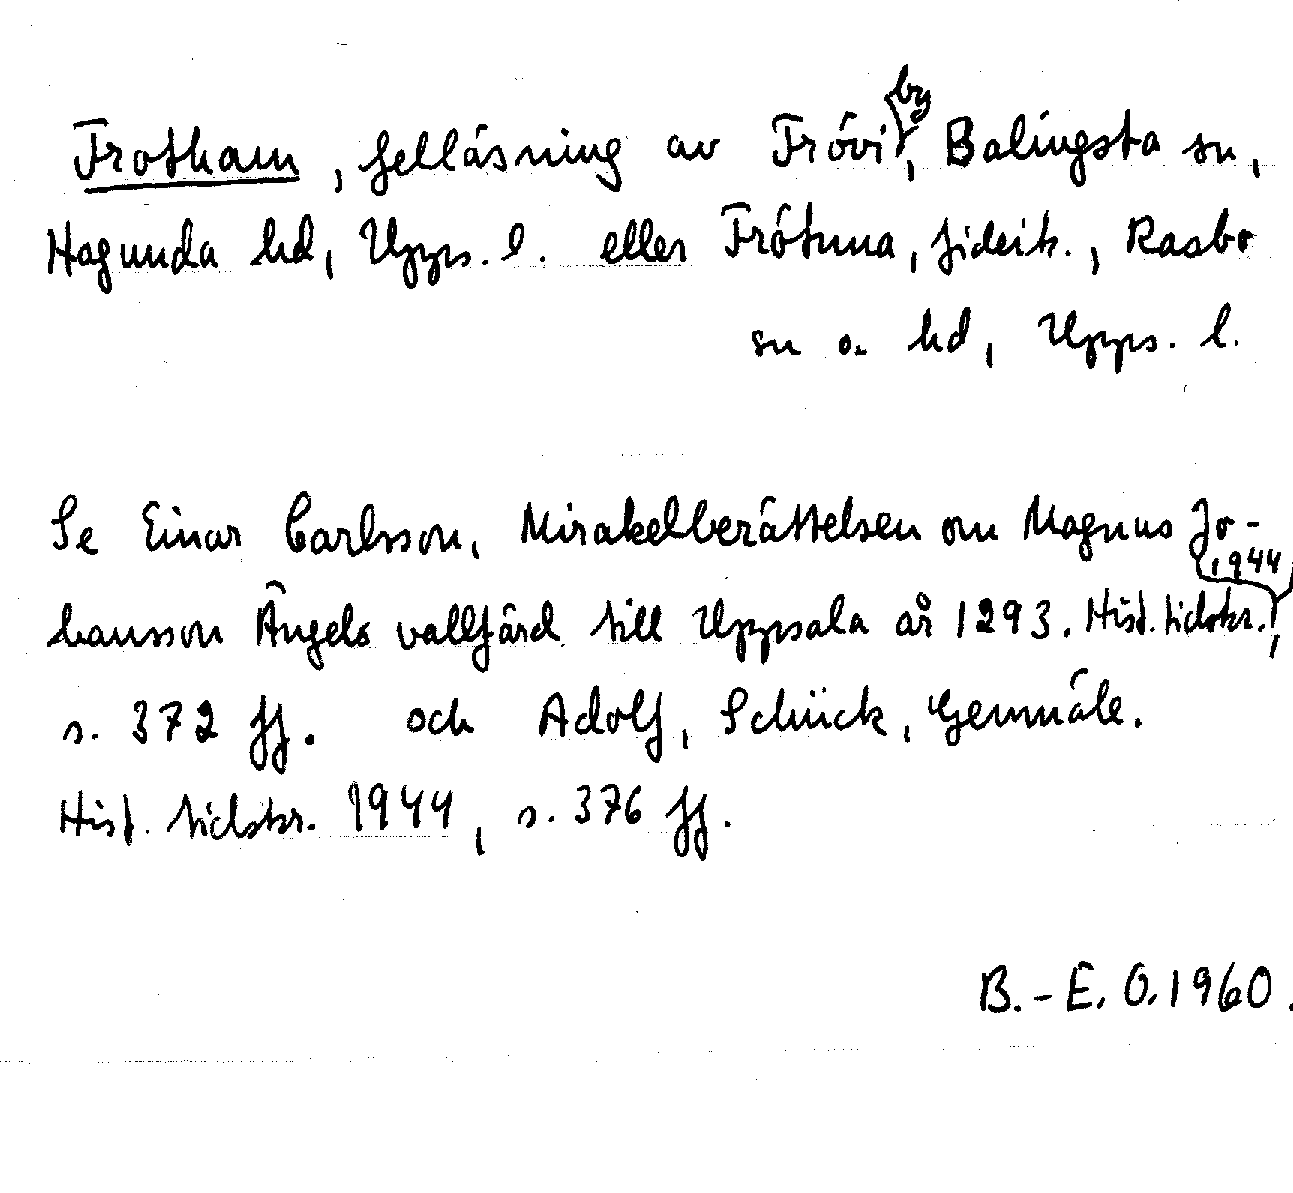 Frotham, felläsning av Frövi by, Balingsta sn,
Hagunda hd, Upps. l. eller Frötuna, fideik., Rasbo
sn o. hd, Upps. l.
Se Einar Carlsson, Mirakelberättelsen om Magnus Jo-
hansson Ängels vallfärd till Uppsala år 1293. Hist. tidskr. 1944,
s. 372 ff. och Adolf, Schück, Genmäle.
Hist. tidskr. 1944, s. 376 ff.
B.-E. O. 1960.